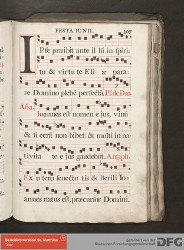 FESTA IUNII. 307
IPse præibit ante il lū in spiri
tu & virtute Eli æ para
re Domino plebē perfectā. Ps. de Dom
Aña. Ioannes est nomen e jus, vinū
& si cerā non bibet: & multi in na
tivita te e jus gaudebūt. Antiph.
Ex u tero senectu tis & sterili Io
annes natus est, præcursor Domini.
DFG